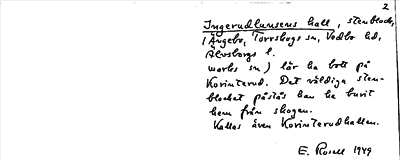 2
Ingerudlunsens hall, stenblock,
(Ängebo, Torrskogs sn, Vedbo hd,
Älvsborgs l.
marks sn) lär ha bott på
Korinterud. Det väldiga sten-
blocket påstås han ha burit
hem från skogen.
Kallas även Korinterudhallen.
E. Rosell 1949